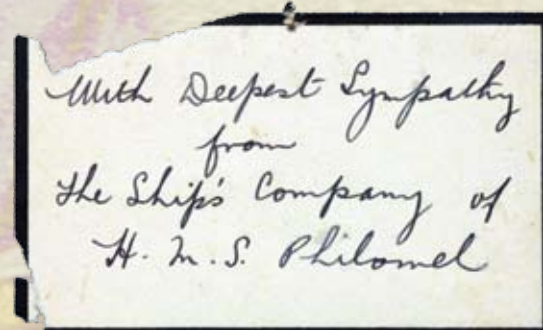 With Deepest Sympathy
from
The Ship's Company of
H. M. S. Philomel